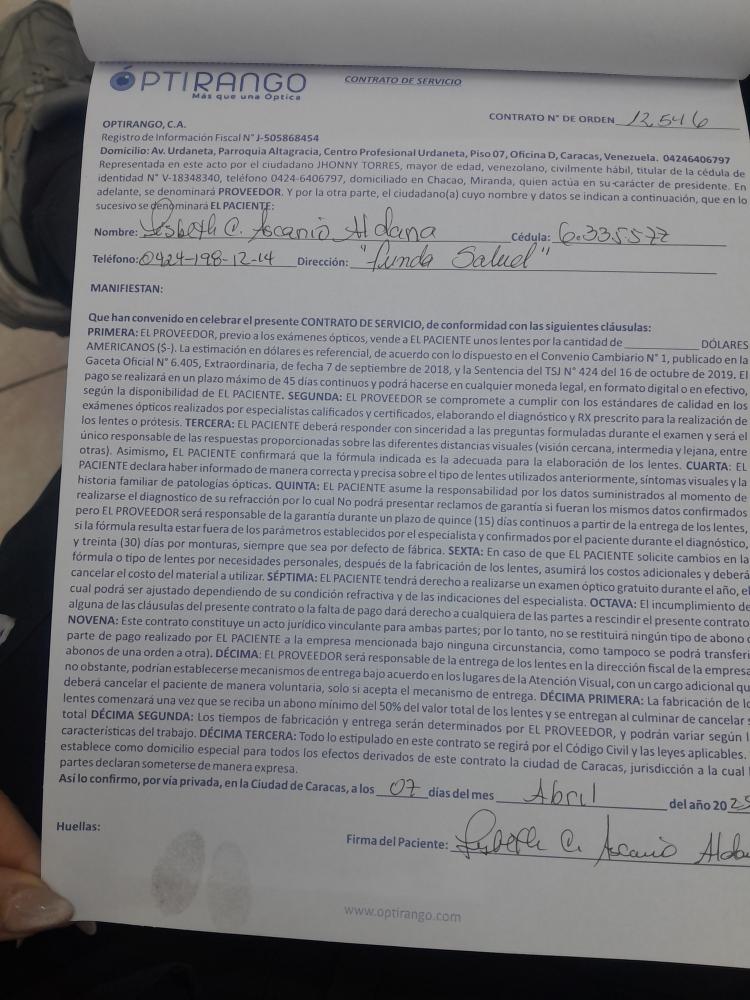 ÓPTIRANGO
Más que una Óptica
CONTRATO DE SERVICIO
CONTRATO N° DE ORDEN 12546
OPTIRANGO, C.A.
Registro de Información Fiscal N° J-505868454
Domicilio: Av. Urdaneta, Parroquia Altagracia, Centro Profesional Urdaneta, Piso 07, Oficina D, Caracas, Venezuela. 04246406797
Representada en este acto por el ciudadano JHONNY TORRES, mayor de edad, venezolano, civilmente hábil, titular de la cédula de
identidad N° V-18348340, teléfono 0424-6406797, domiciliado en Chacao, Miranda, quien actúa en su carácter de presidente. En
adelante, se denominará PROVEEDOR. Y por la otra parte, el ciudadano(a) cuyo nombre y datos se indican a continuación, que en lo
sucesivo se denominará EL PACIENTE:
Nombre: Lisbeth C. Ascanio Aldana Cédula: 6.335.577
Teléfono: 0424-198-12-14 Dirección: "Funda Salud"
MANIFIESTAN:
Que han convenido en celebrar el presente CONTRATO DE SERVICIO, de conformidad con las siguientes cláusulas:
PRIMERA: EL PROVEEDOR, previo a los exámenes ópticos, vende a EL PACIENTE unos lentes por la cantidad de ____________ DÓLARES
AMERICANOS ($-). La estimación en dólares es referencial, de acuerdo con lo dispuesto en el Convenio Cambiario N° 1, publicado en la
Gaceta Oficial N° 6.405, Extraordinaria, de fecha 7 de septiembre de 2018, y la Sentencia del TSJ N° 424 del 16 de octubre de 2019. El
pago se realizará en un plazo máximo de 45 días continuos y podrá hacerse en cualquier moneda legal, en formato digital o en efectivo,
según la disponibilidad de EL PACIENTE. SEGUNDA: EL PROVEEDOR se compromete a cumplir con los estándares de calidad en los
exámenes ópticos realizados por especialistas calificados y certificados, elaborando el diagnóstico y RX prescrito para la realización de
los lentes o prótesis. TERCERA: EL PACIENTE deberá responder con sinceridad a las preguntas formuladas durante el examen y será el
único responsable de las respuestas proporcionadas sobre las diferentes distancias visuales (visión cercana, intermedia y lejana, entre
otras). Asimismo, EL PACIENTE confirmará que la fórmula indicada es la adecuada para la elaboración de los lentes. CUARTA: EL
PACIENTE declara haber informado de manera correcta y precisa sobre el tipo de lentes utilizados anteriormente, síntomas visuales y la
historia familiar de patologías ópticas. QUINTA: EL PACIENTE asume la responsabilidad por los datos suministrados al momento de
realizarse el diagnostico de su refracción por lo cual No podrá presentar reclamos de garantía si fueran los mismos datos confirmados
pero EL PROVEEDOR será responsable de la garantía durante un plazo de quince (15) días continuos a partir de la entrega de los lentes,
si la fórmula resulta estar fuera de los parámetros establecidos por el especialista y confirmados por el paciente durante el diagnóstico,
y treinta (30) días por monturas, siempre que sea por defecto de fábrica. SEXTA: En caso de que EL PACIENTE solicite cambios en la
fórmula o tipo de lentes por necesidades personales, después de la fabricación de los lentes, asumirá los costos adicionales y deberá
cancelar el costo del material a utilizar. SÉPTIMA: EL PACIENTE tendrá derecho a realizarse un examen óptico gratuito durante el año, el
cual podrá ser ajustado dependiendo de su condición refractiva y de las indicaciones del especialista. OCTAVA: El incumplimiento de
alguna de las cláusulas del presente contrato o la falta de pago dará derecho a cualquiera de las partes a rescindir el presente contrato
NOVENA: Este contrato constituye un acto jurídico vinculante para ambas partes; por lo tanto, no se restituirá ningún tipo de abono o
parte de pago realizado por EL PACIENTE a la empresa mencionada bajo ninguna circunstancia, como tampoco se podrá transferi
abonos de una orden a otra). DÉCIMA: EL PROVEEDOR será responsable de la entrega de los lentes en la dirección fiscal de la empresa
no obstante, podrían establecerse mecanismos de entrega bajo acuerdo en los lugares de la Atención Visual, con un cargo adicional qu
deberá cancelar el paciente de manera voluntaria, solo si acepta el mecanismo de entrega. DÉCIMA PRIMERA: La fabricación de lo
lentes comenzará una vez que se reciba un abono mínimo del 50% del valor total de los lentes y se entregan al culminar de cancelar s
total DÉCIMA SEGUNDA: Los tiempos de fabricación y entrega serán determinados por EL PROVEEDOR, y podrán variar según l
características del trabajo. DÉCIMA TERCERA: Todo lo estipulado en este contrato se regirá por el Código Civil y las leyes aplicables.
establece como domicilio especial para todos los efectos derivados de este contrato la ciudad de Caracas, jurisdicción a la cual l
partes declaran someterse de manera expresa.
Así lo confirmo, por vía privada, en la Ciudad de Caracas, a los 07 días del mes Abril del año 2025
Huellas:
Firma del Paciente: Lisbeth C. Ascanio Alda
www.optirango.com